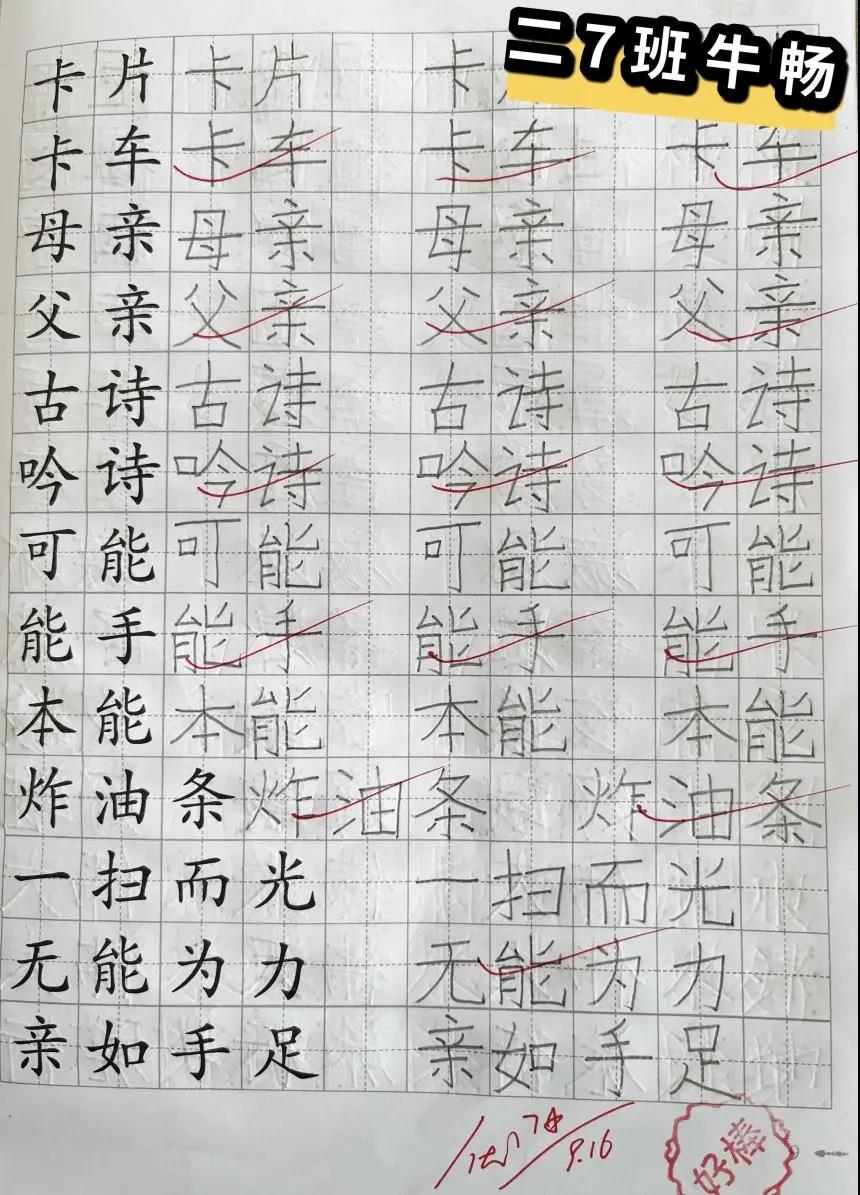 二7班牛畅
卡片 卡片 卡片
卡车 卡车 卡车 卡车
母亲 母亲 母亲 母亲
父亲 父亲 父亲 父亲
古诗 古诗 古诗 古诗
吟诗 吟诗 吟诗 吟诗
可能 可能 可能 可能
能手 能手 能手 能手
本能 本能 本能 本能
炸油条 炸油条 炸油条
一扫而光 一扫而光
无能为力 无能为力
亲如手足 亲如手足
9.16
好棒